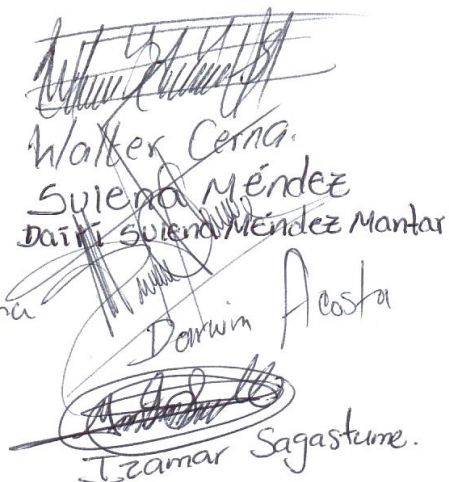 Walter Cerna.
Suiena Méndez
Dairi Suiena Méndez Mantar
Darwin Acosta
Izamar Sagastume.